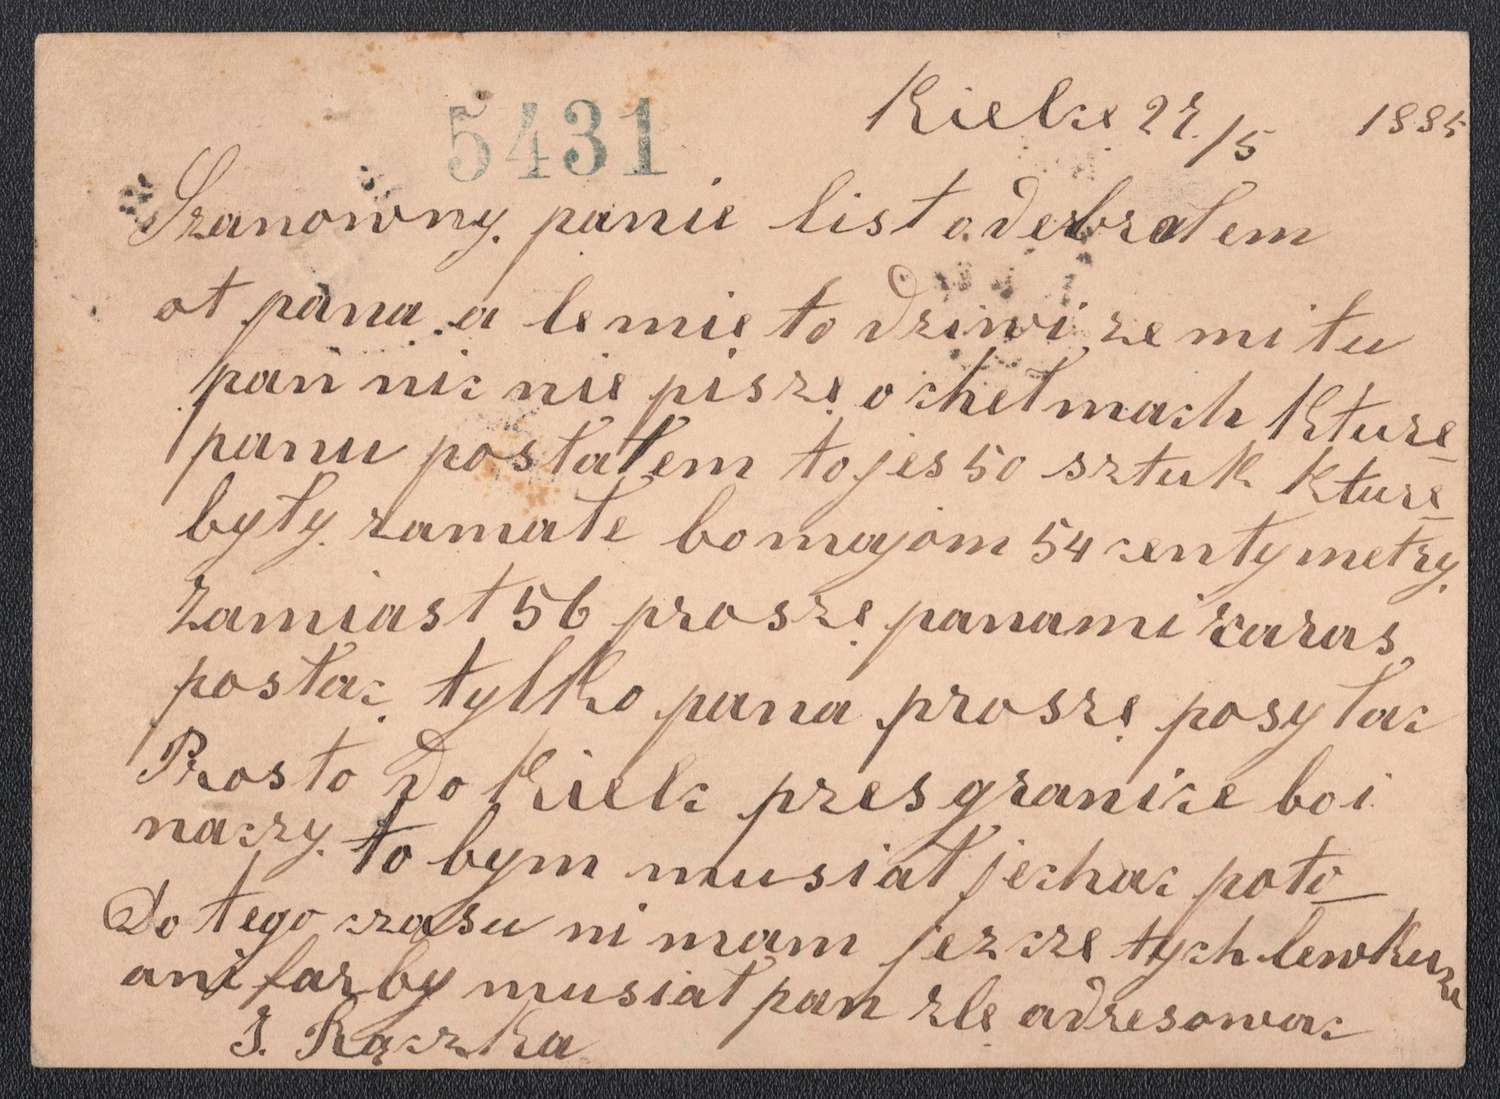 5431
Kielce 27/5 1885
Szanowny panie list odebrałem
ot pana a le mie to dziwi ze mi tu
pan nic nie pisze o chełmach kture
panu posłałem to jes 50 sztuk kture
były zamałe bo majom 54 centymetry
zamiast 56 prosze pana mi zaras
posłac tylko pana prosze posyłac
Prosto do Kielc przes granice bo i
naczy to bym musiał jechac poto
Do tego czasu ni mam jezcze tych
ani farby musiał pan zle adresowac
J. Rączka